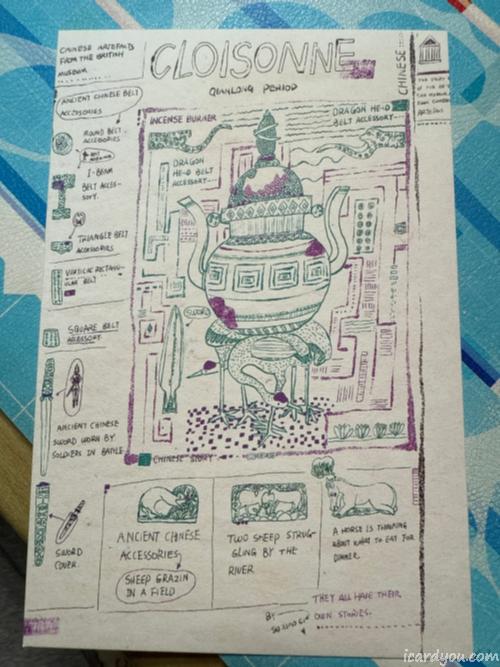 CHINESE ARTEFACTS
FROM THE BRITISH
MUSEUM
CLOISONNE
QIANLONG PERIOD
CHINESE
ANCIENT CHINESE BELT
ACCESSORIES
ROUND BELT
ACCESSORIES
I-BEAM
BELT ACCES-
SORY.
TRIANGLE BELT
ACCESSORIES
VERTICAL RECTANG-
ULAR BELT
SQUARE BELT
ACCESSORY
ANCIENT CHINESE
SWORD WORN BY
SOLDIERS IN BATTLE
SWORD
COVER.
INCENSE BURNER
DRAGON HEAD
BELT ACCESSORY
DRAGON
HEAD BELT
ACCESSORY
SWORD
CHINESE STORY
ANCIENT CHINESE
ACCESSORIES
SHEEP GRAZIN
IN A FIELD
TWO SHEEP STRUG-
GLING BY THE
RIVER
A HORSE IS THINKING
ABOUT WHAT TO EAT FOR
DINNER.
THEY ALL HAVE THEIR
OWN STORIES.
BY
icardyou.com